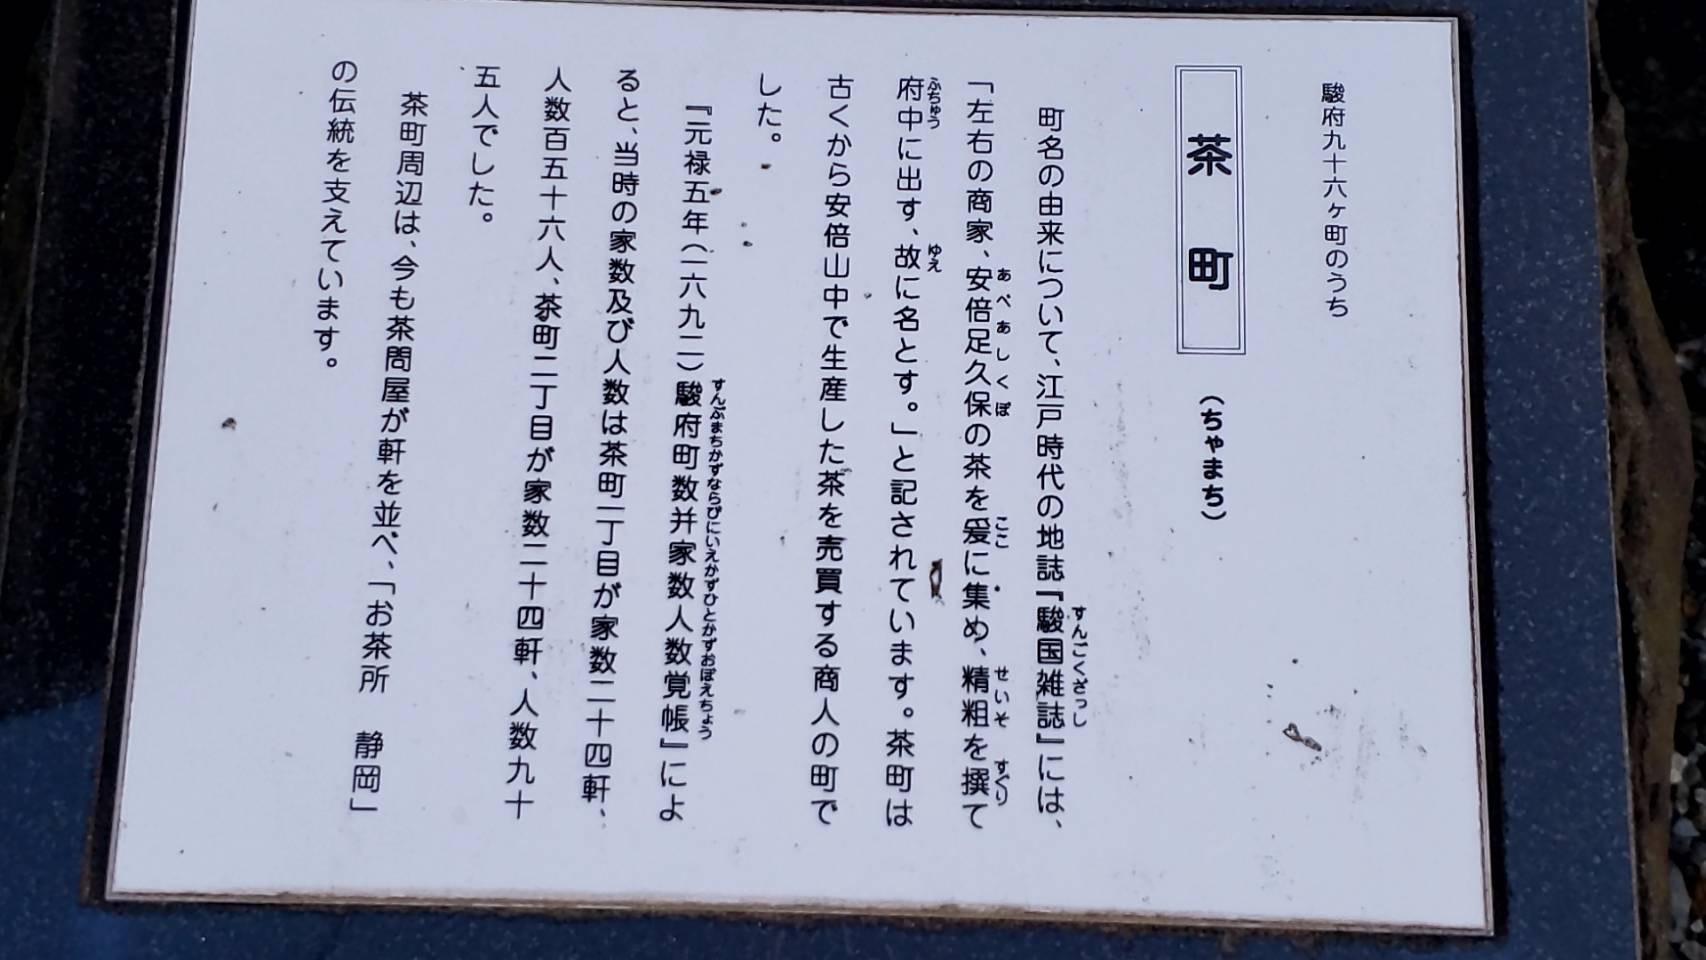 駿府九十六ヶ町のうち
茶町（ちゃまち）
町名の由来について、江戸時代の地誌『駿国雑誌』には、
すんごくざっし
「左右の商家、安倍足久保の茶を爰に集め、精粗を撰て
あべあしくぼ ここ せいそ すぐり
府中に出す、故に名とす。」と記されています。茶町は
ふちゅう ゆえ
古くから安倍山中で生産した茶を売買する商人の町で
した。
『元禄五年（一六九二）駿府町数并家数人数覚帳』によ
すんぷまちかずならびにいえかずひとかずおぼえちょう
ると、当時の家数及び人数は茶町一丁目が家数二十四軒、
人数百五十六人、茶町二丁目が家数二十四軒、人数九十
五人でした。
茶町周辺は、今も茶問屋が軒を並べ、「お茶所　静岡」
の伝統を支えています。